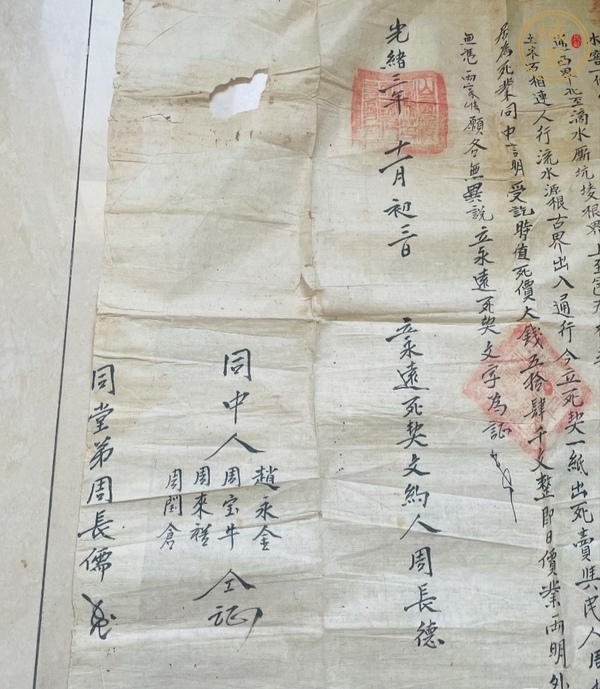 水窖一
通西界北至滴水厮坑堎根界上至
土木石相連人行流水派根古界出入通行今立死契一紙出死賣與民人周
居為死業同中言明受訖時值死價大錢五拾肆千文整即日價業兩明外
無憑兩家情願各無異說立永遠死契文字為証
光緒三年十一月初三日 立永遠死契文約人周長德
同中人
趙永金
周宝牛
周來禧
周閏倉
仝証
同堂弟周長儒